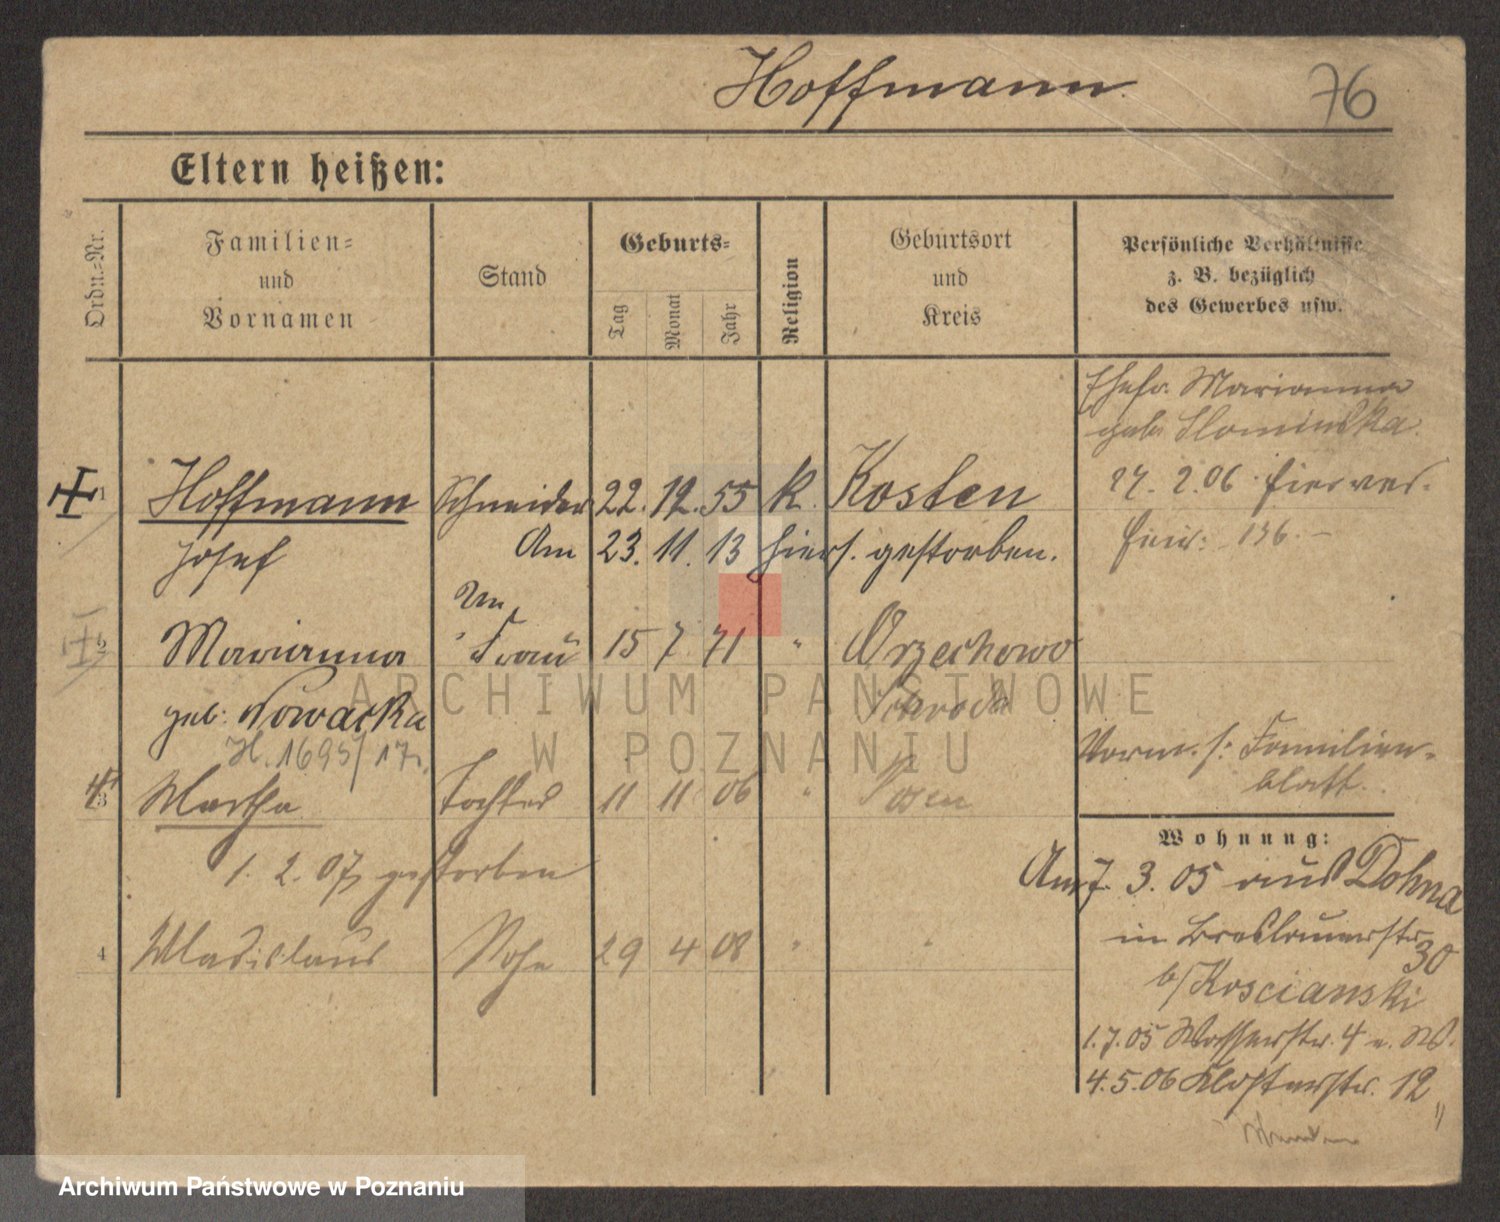 Hoffmann.
76
Eltern heißen:
Ordn.=Nr.
Familien=
und
Vornamen
Stand
Geburts=
Tag
Monat
Jahr
Religion
Geburtsort
und
Kreis
Persönliche Verhältnisse
z. B. bezüglich
des Gewerbes usw.
Ehefr. Marianna
geb. Slominska.
1 Hoffmann Schneider 22. 12. 55 k. Kosten
27. 2. 06 hier ver-
Josef Am 23. 11. 13 hiers. gestorben.
136. –
2 Marianna Frau 15 7 71 " Orzechowo
geb. Nowacka
H. 1695/17.
Vorm. s. Familien-
blatt.
3 Martha Tochter 11 11 06 " Posen
1. 2. 07 gestorben
4 Wladislaus Sohn 29 4 08 " "
Wohnung:
Am 7. 3. 05 aus Dohna
in Breslauerstr
30
b/Koscianski
1. 7. 05 Wasserstr. 4 u. W.
4. 5. 06 Klosterstr. 12 "
ARCHIWUM PAŃSTWOWE
W POZNANIU
Archiwum Państwowe w Poznaniu